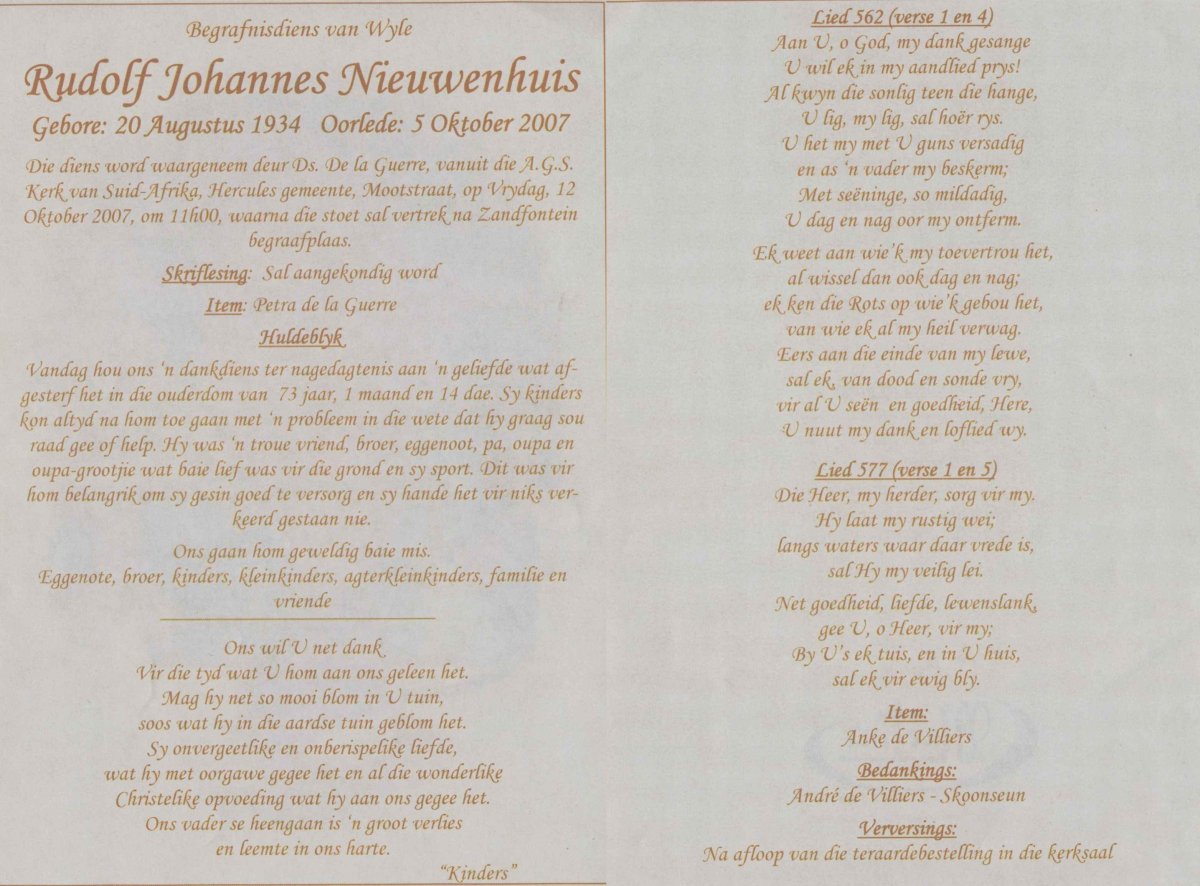 Begrafnisdiens van Wyle
Rudolf Johannes Nieuwenhuis
Gebore: 20 Augustus 1934 Oorlede: 5 Oktober 2007
Die diens word waargeneem deur Ds. De la Guerre, vanuit die A.G.S.
Kerk van Suid-Afrika, Hercules gemeente, Mootstraat, op Vrydag, 12
Oktober 2007, om 11h00, waarna die stoet sal vertrek na Zandfontein
begraafplaas.
Skriflesing: Sal aangekondig word
Item: Petra de la Guerre
Huldeblyk
Vandag hou ons ‘n dankdiens ter nagedagtenis aan ‘n geliefde wat af-
gesterf het in die ouderdom van 73 jaar, 1 maand en 14 dae. Sy kinders
kon altyd na hom toe gaan met ‘n probleem in die wete dat hy graag sou
raad gee of help. Hy was ‘n troue vriend, broer, eggenoot, pa, oupa en
oupa-grootjie wat baie lief was vir die grond en sy sport. Dit was vir
hom belangrik om sy gesin goed te versorg en sy hande het vir niks ver-
keerd gestaan nie.
Ons gaan hom geweldig baie mis.
Eggenote, broer, kinders, kleinkinders, agterkleinkinders, familie en
vriende
Ons wil U net dank
Vir die tyd wat U hom aan ons geleen het.
Mag hy net so mooi blom in U tuin,
soos wat hy in die aardse tuin geblom het.
Sy onvergeetlike en onberispelike liefde,
wat hy met oorgawe gegee het en al die wonderlike
Christelike opvoeding wat hy aan ons gegee het.
Ons vader se heengaan is ‘n groot verlies
en leemte in ons harte.
“Kinders”
Lied 562 (verse 1 en 4)
Aan U, o God, my dank gesange
U wil ek in my aandlied prys!
Al kwyn die sonlig teen die hange,
U lig, my lig, sal hoër rys.
U het my met U guns versadig
en as ‘n vader my beskerm;
Met seëninge, so mildadig,
U dag en nag oor my ontferm.
Ek weet aan wie’k my toevertrou het,
al wissel dan ook dag en nag;
ek ken die Rots op wie’k gebou het,
van wie ek al my heil verwag.
Eers aan die einde van my lewe,
sal ek, van dood en sonde vry,
vir al U seën en goedheid, Here,
U nuut my dank en loflied wy.
Lied 577 (verse 1 en 5)
Die Heer, my herder, sorg vir my.
Hy laat my rustig wei;
langs waters waar daar vrede is,
sal Hy my veilig lei.
Net goedheid, liefde, lewenslank,
gee U, o Heer, vir my;
By U’s ek tuis, en in U huis,
sal ek vir ewig bly.
Item:
Anke de Villiers
Bedankings:
André de Villiers - Skoonseun
Verversings:
Na afloop van die teraardebestelling in die kerksaal